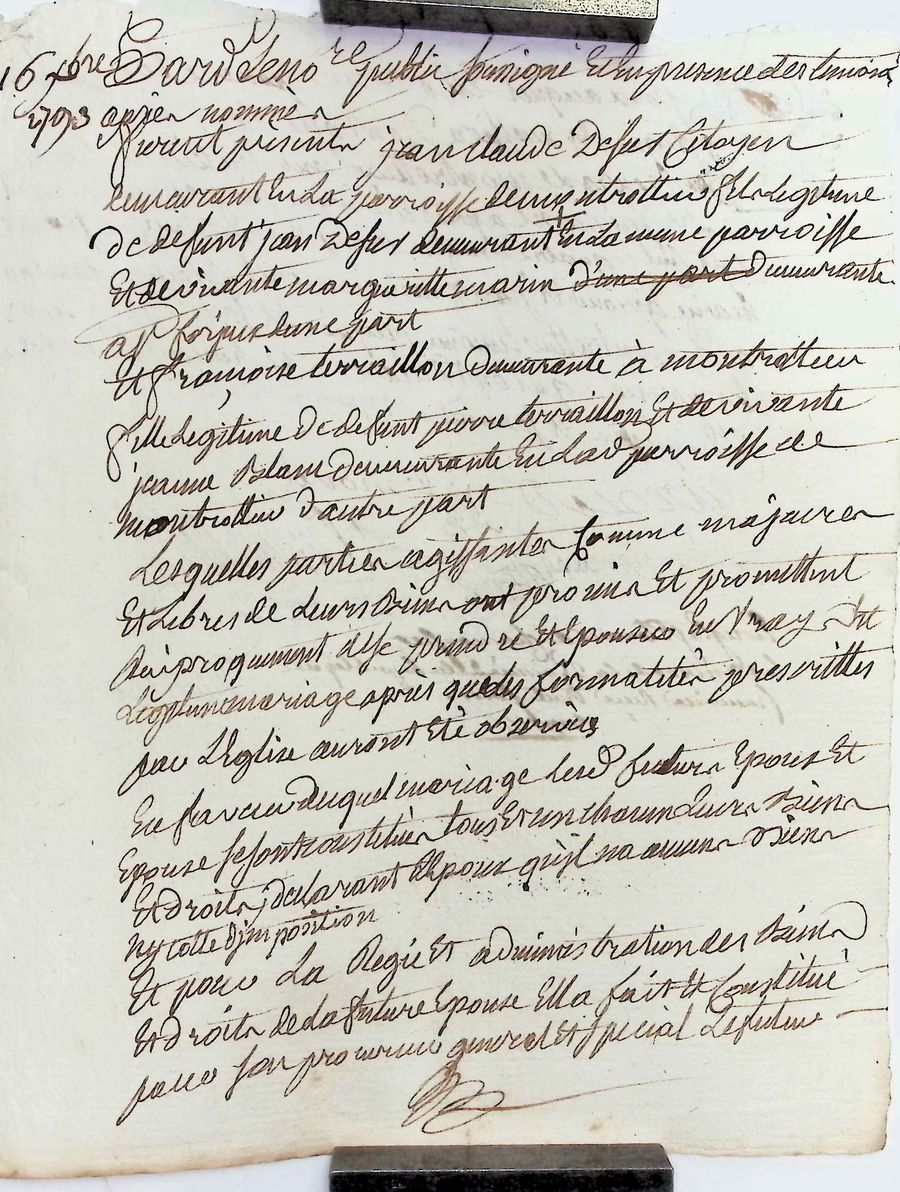 16 xbre
1793
Pardt. Le no.re public soussigné Et En presence des temoins
après nommés
furent présents jean claude Defer Citoyen
demeurant En La parroisse de montrottier fils Legitime
de defunt jean Defer demeurant En La meme parroisse
Et de vivante margueritte marin d'une part demeurante
a St forjeux d'une part
Et françoise terraillon demeurante à montrottier
fille Legitime de defunt pierre terraillon Et de vivante
jeanne Blanc demeurante En Lad. parroisse de
montrottier d'autre part
Lesquelles parties agissantes Comme majeures
Et Libres de Leurs Biens ont promis Et promettent
Réciproquement de se prendre Et Epouser En Vray Et
Legitime mariage après que les formalités prescrittes
par L'Eglise auront Eté observées
En faveur duquel mariage lesd. futurs Epoux Et
Epouse se sont constitués tous Et un chacun Leurs Biens
Et droits, declarant L'Epoux qu'jl na aucuns Biens
ny cotte d'imposition
Et pour La Regie Et administration des Biens
Et droits de la future Epouse Ell a fait Et Constitué
pour son procureur general Et special Le futur